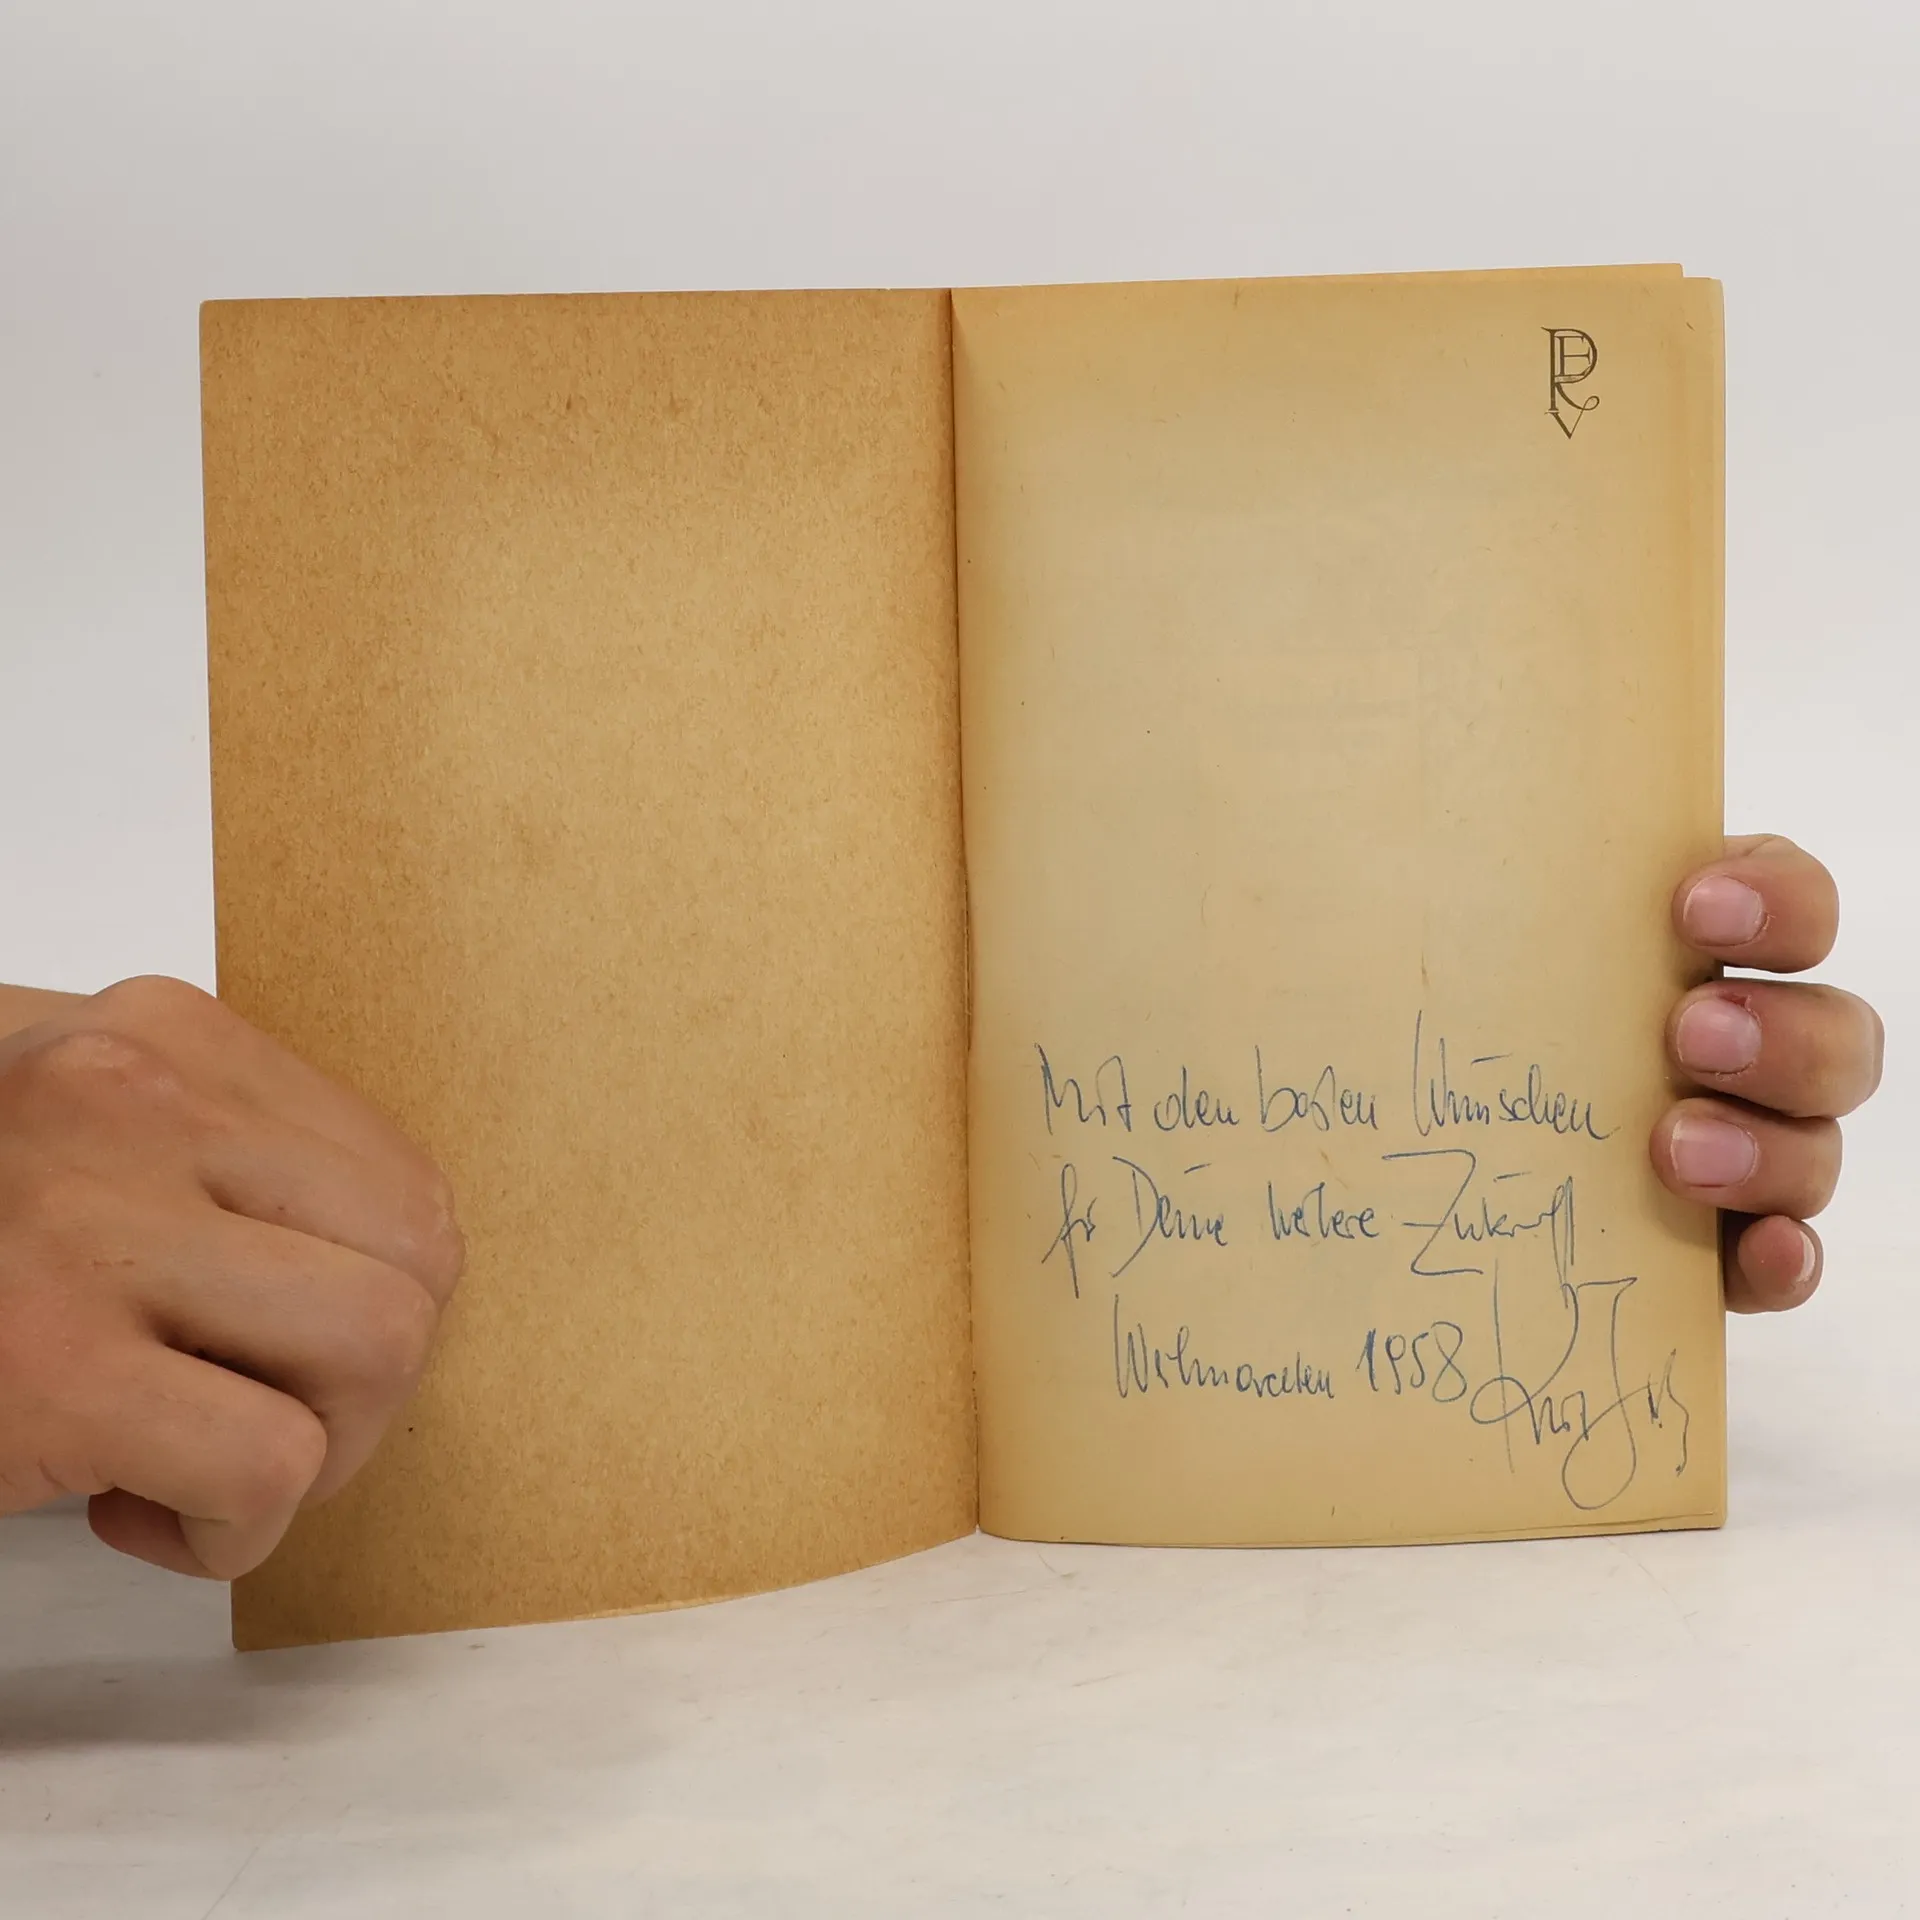 PERV
Mit den besten Wünschen
für Deine weitere Zukunft.
Weihnachten 1958 Kurt